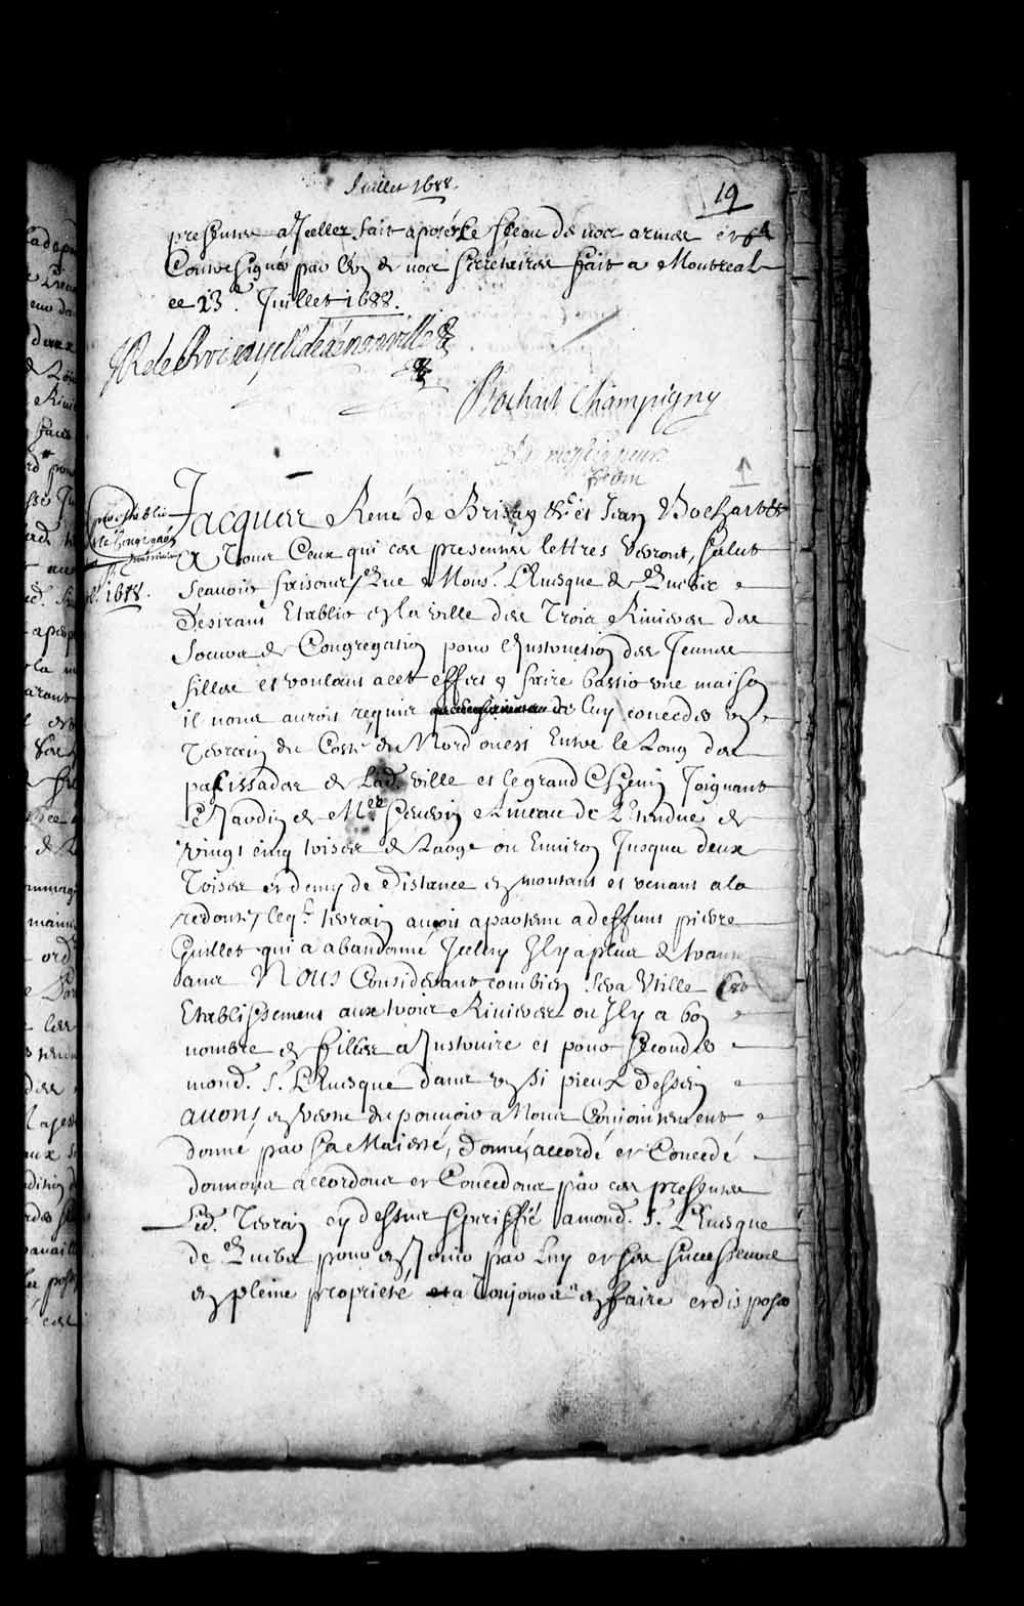 Juillet 1688.
19
presentes a Jcelles fait aposer Le sceau de nos armes et
Contresigné par L'un de nos secretaires fait a Montreal
ce 13e. Juillet 1688.
JR de Brisay M. de denonville
Bochart Champigny
Par messeigneurs
pr establir
la Congrega.on
1688.
Jacques René de Brisay &c et Jean Bochart &
A Tous Ceux qui ces presentes lettres verront, salut
Scauoir faisons, Que Mons.r L'Euesque de Quebec
Desirant Etablir en la ville des Trois Riuieres des
Soeurs de Congregation pour L'Instruction des Jeunes
filles et voulant a cet effect y faire bastir vne maison
il nous auroit requis de luy conceder vn
Terrain du Costé du Nord ouest Entre le Long des
palissades de Lad. ville et le grand Chemin Joignant
le Jardin de M.re de L'etendue de
vingt cinq toises de Large ou Enuiron Jusqua deux
Toises et demy de distance en montant et venant a la
redoute, leq.l terrain auoit apartenu a deffunt pierre
Guillet qui a abandonné Jceluy Jl y a plus de trente
ans Nous Considerant combien sera Vtille Cet
Etablissement aux trois Riuieres ou Jl y a bon
nombre de filles a Jnstruire et pour seconder
mond. S.r L'Euesque dans vn si pieux dessein
auons, en vertu du pouuoir a Nous Conjointement
donné par Sa Maiesté, donné, accordé et Concedé
donnons accordons et Concedons par ces presentes
Led. Terrain cy dessus specifié a mond. S.r L'Euesque
de Quebec pour en Jouir par Luy et ses successeurs
en pleine proprieté et a Toujours en faire et dispose